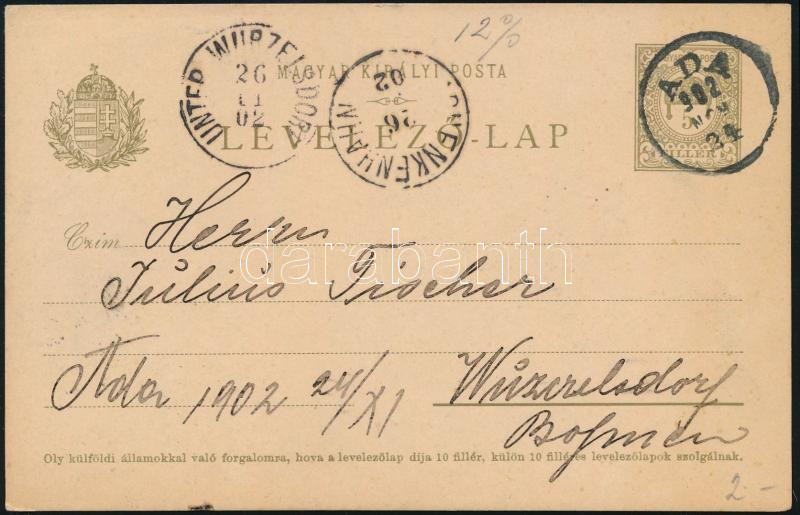 12%
UNTER WURZELSDORF
26
11
02
02
26
MAGYAR KIRÁLYI POSTA
LEVELEZŐ-LAP
ADA
902
NOV
24
5
FILLER
Czim
Herrn
Julius Fischer
Ada 1902 24/XI
Wuzerelsdorf
Bohmen
darabanth
Oly külföldi államokkal való forgalomra, hova a levelezőlap dija 10 fillér, külön 10 filléres levelezőlapok szolgálnak.
2-